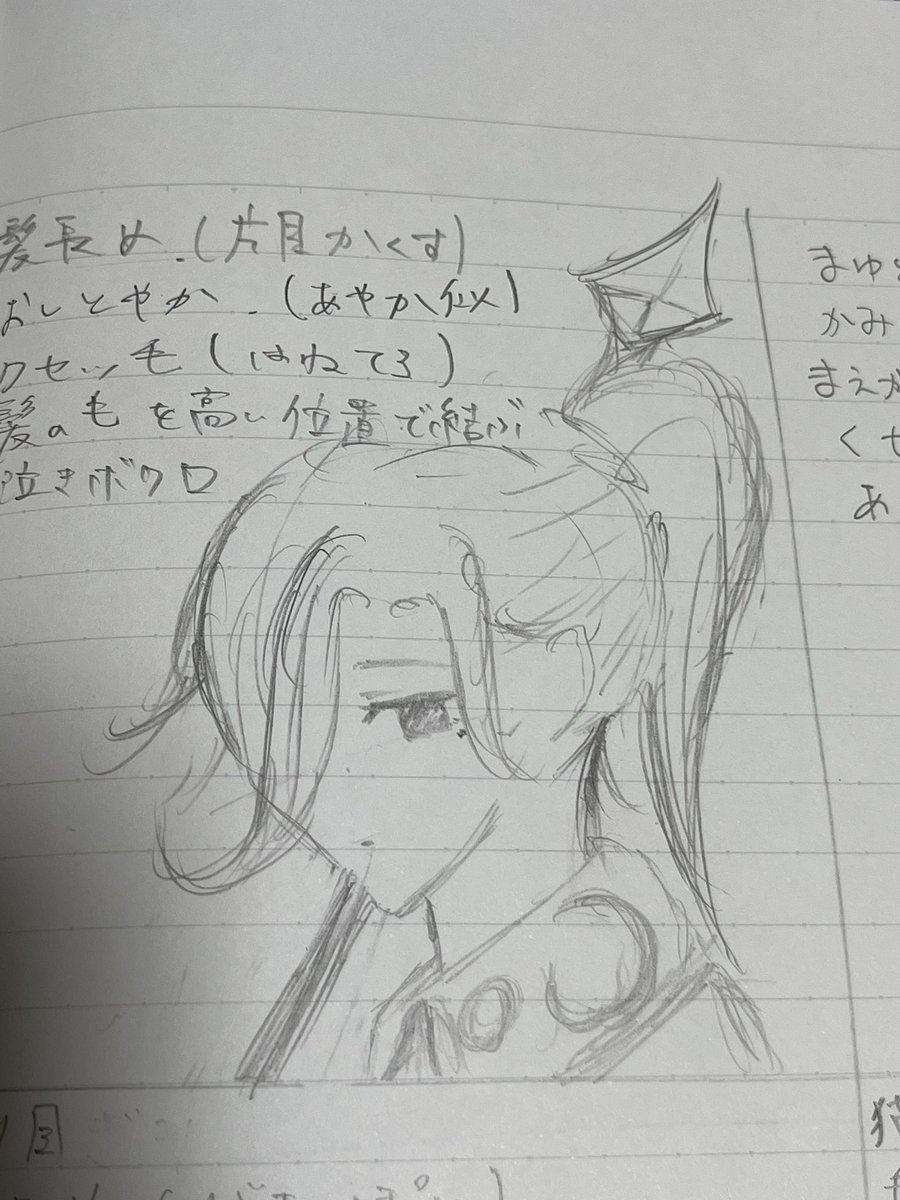 髪長め.(片目かくす)
おしとやか.(あやか似)
クセッ毛(はねてる)
髪のもを高い位置で結ぶ
泣きボクロ
まゆ
かみ
まえが
くせ
あ